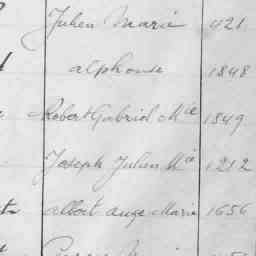 Julien Marie 421
alphonse 1848
Robert Gabriel Mie 1849
Joseph Julien Mie 1212
albert ange Marie 1656